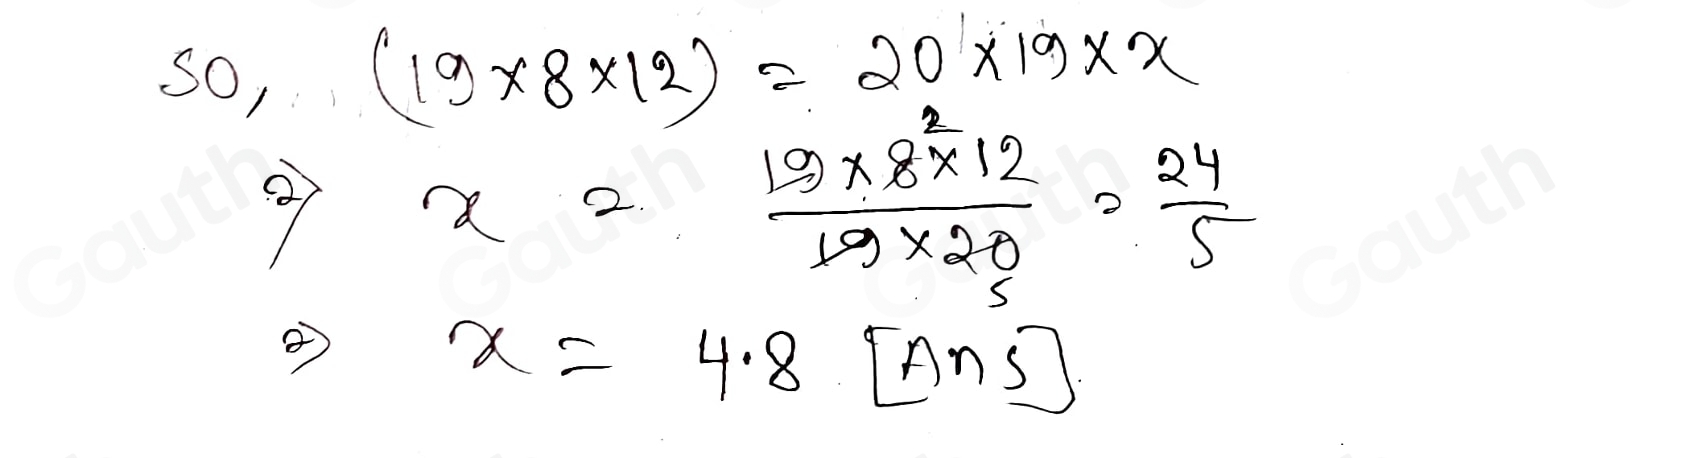 so, (19×8×12) = 20×19×x
⇒ x = 19×8×12 2 / 19×20 5 = 24/5
⇒ x = 4.8 [Ans]
Gauth Gauth Gauth Gauth